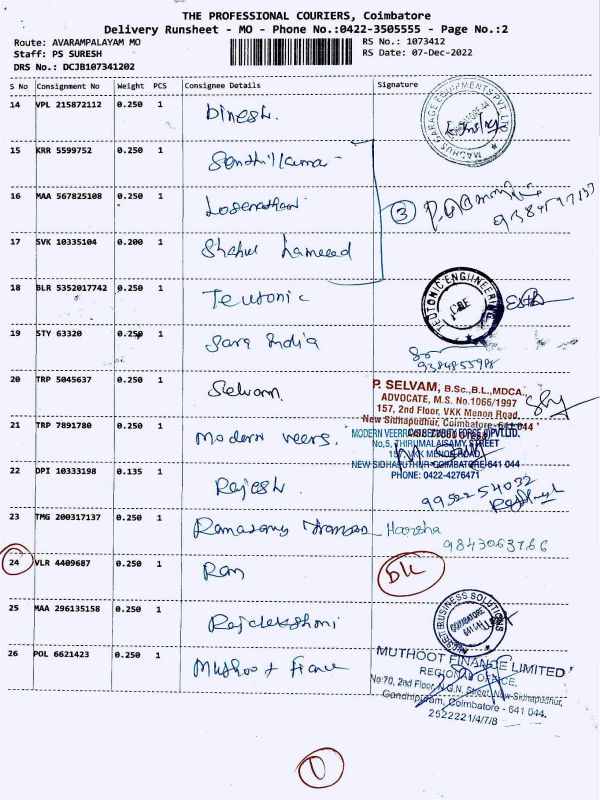 THE PROFESSIONAL COURIERS, Coimbatore
Delivery Runsheet - MO - Phone No.:0422-3505555 - Page No.:2
Route: AVARAMPALAYAM MO RS No.: 1073412
Staff: PS SURESH RS Date: 07-Dec-2022
DRS No.: DCJB107341202
S No Consignment No Weight PCS Consignee Details Signature
14 VPL 215872112 0.250 1 Dinesh. MADHUS GARAGE EQUIPMENTS PVT. LTD
15 KRR 5599752 0.250 1 Senthilkumar
16 MAA 567825108 0.250 1 Loganathan 3
17 SVK 10335104 0.200 1 Shahul Hameed
18 BLR 5352017742 0.250 1 Teutonic TEUTONIC ENGINEERING CBE
19 STY 63320 0.250 1 Sara India
9384855988
20 TRP 5045637 0.250 1 Selvam
P. SELVAM, B.Sc.,B.L.,MDCA.,
ADVOCATE, M.S. No.1066/1997
157, 2nd Floor, VKK Menon Road,
New Sidhapudhur, Coimbatore-641 044
21 TRP 7891780 0.250 1 Modern veers.
No.5, THIRUMALAISAMY STREET
NEW SIDHAPUTHUR COIMBATORE-641 044
PHONE: 0422-4276471
22 DPI 10333198 0.135 1 Rajesh 9952254032
23 TMG 200317137 0.250 1 Ramasamy Harsha
9843063766
24 VLR 4409687 0.250 1 Ram
25 MAA 296135158 0.250 1 Rajalekshmi BUSINESS SOLUTIONS COIMBATORE
26 POL 6621423 0.250 1 Muthoot Finance
MUTHOOT FINANCE LIMITED
REGIONAL OFFICE,
No:70, 2nd Floor, N.G.N. Street, New Sidhapudhur,
Gandhipuram, Coimbatore - 641 044.
2522221/4/7/8
1